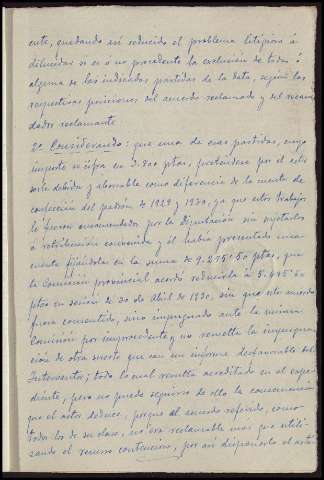 ente, quedando así reducido el problema litigioso á
dilucidar si es o no procedente la exclusión de todas ó
alguna de las indicadas partidas de la data, según las
respectivas posiciones del acuerdo reclamado y del recau
dador reclamante.
2º Considerando: que una de esas partidas, cuyo
importe se cifra en 3.800 ptas, preténdese por el actor
serle debida y abonable como diferencia de la cuenta de
confección del padrón de 1929 y 1930, ya que estos trabajos
le fueron encomendados por la Diputación sin sujetarlos
a retribución convenida y él había presentado una
cuenta fijándolas en la suma de 9.275'50 ptas, que
la Comisión provincial acordó reducirla á 5.475'50
ptas en sesión de 30 de Abril de 1930, sin que este acuerdo
fuera consentido, sino impugnado ante la misma
Comisión por improcedente y no resuelta la impugna
ción de otra suerte que con un informe desfavorable del
Interventor; todo lo cual resulta acreditado en el expe
diente, pero no puede seguirse de ello la consecuencia
que el actor deduce, porque el acuerdo referido, como
todos los de su clase, no era reclamable mas que utili-
zando el recurso contencioso, por así disponerlo el artí